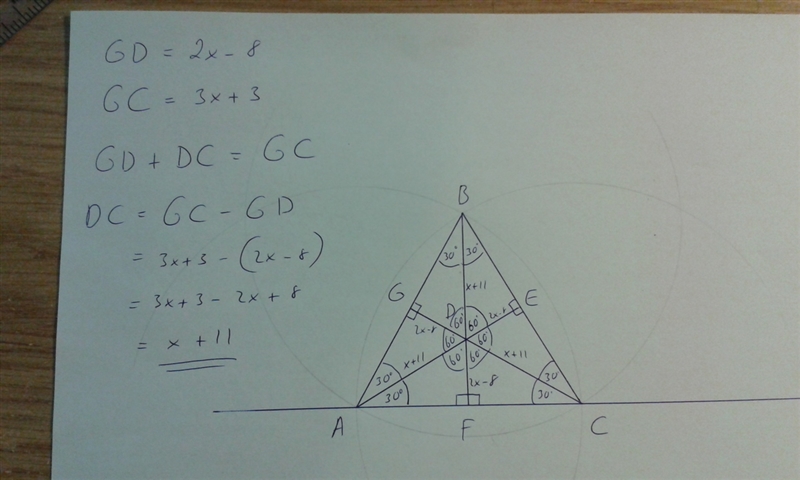 GD = 2x - 8
GC = 3x + 3
GD + DC = GC
DC = GC - GD
= 3x+3 - (2x - 8)
= 3x+3 - 2x + 8
= x + 11
B
30° 30°
x+11
G E
D
2x-8 60° 60° 2x-8
60 60
x+11 60 60 x+11
30° 30
2x-8
30° 30°
A F C